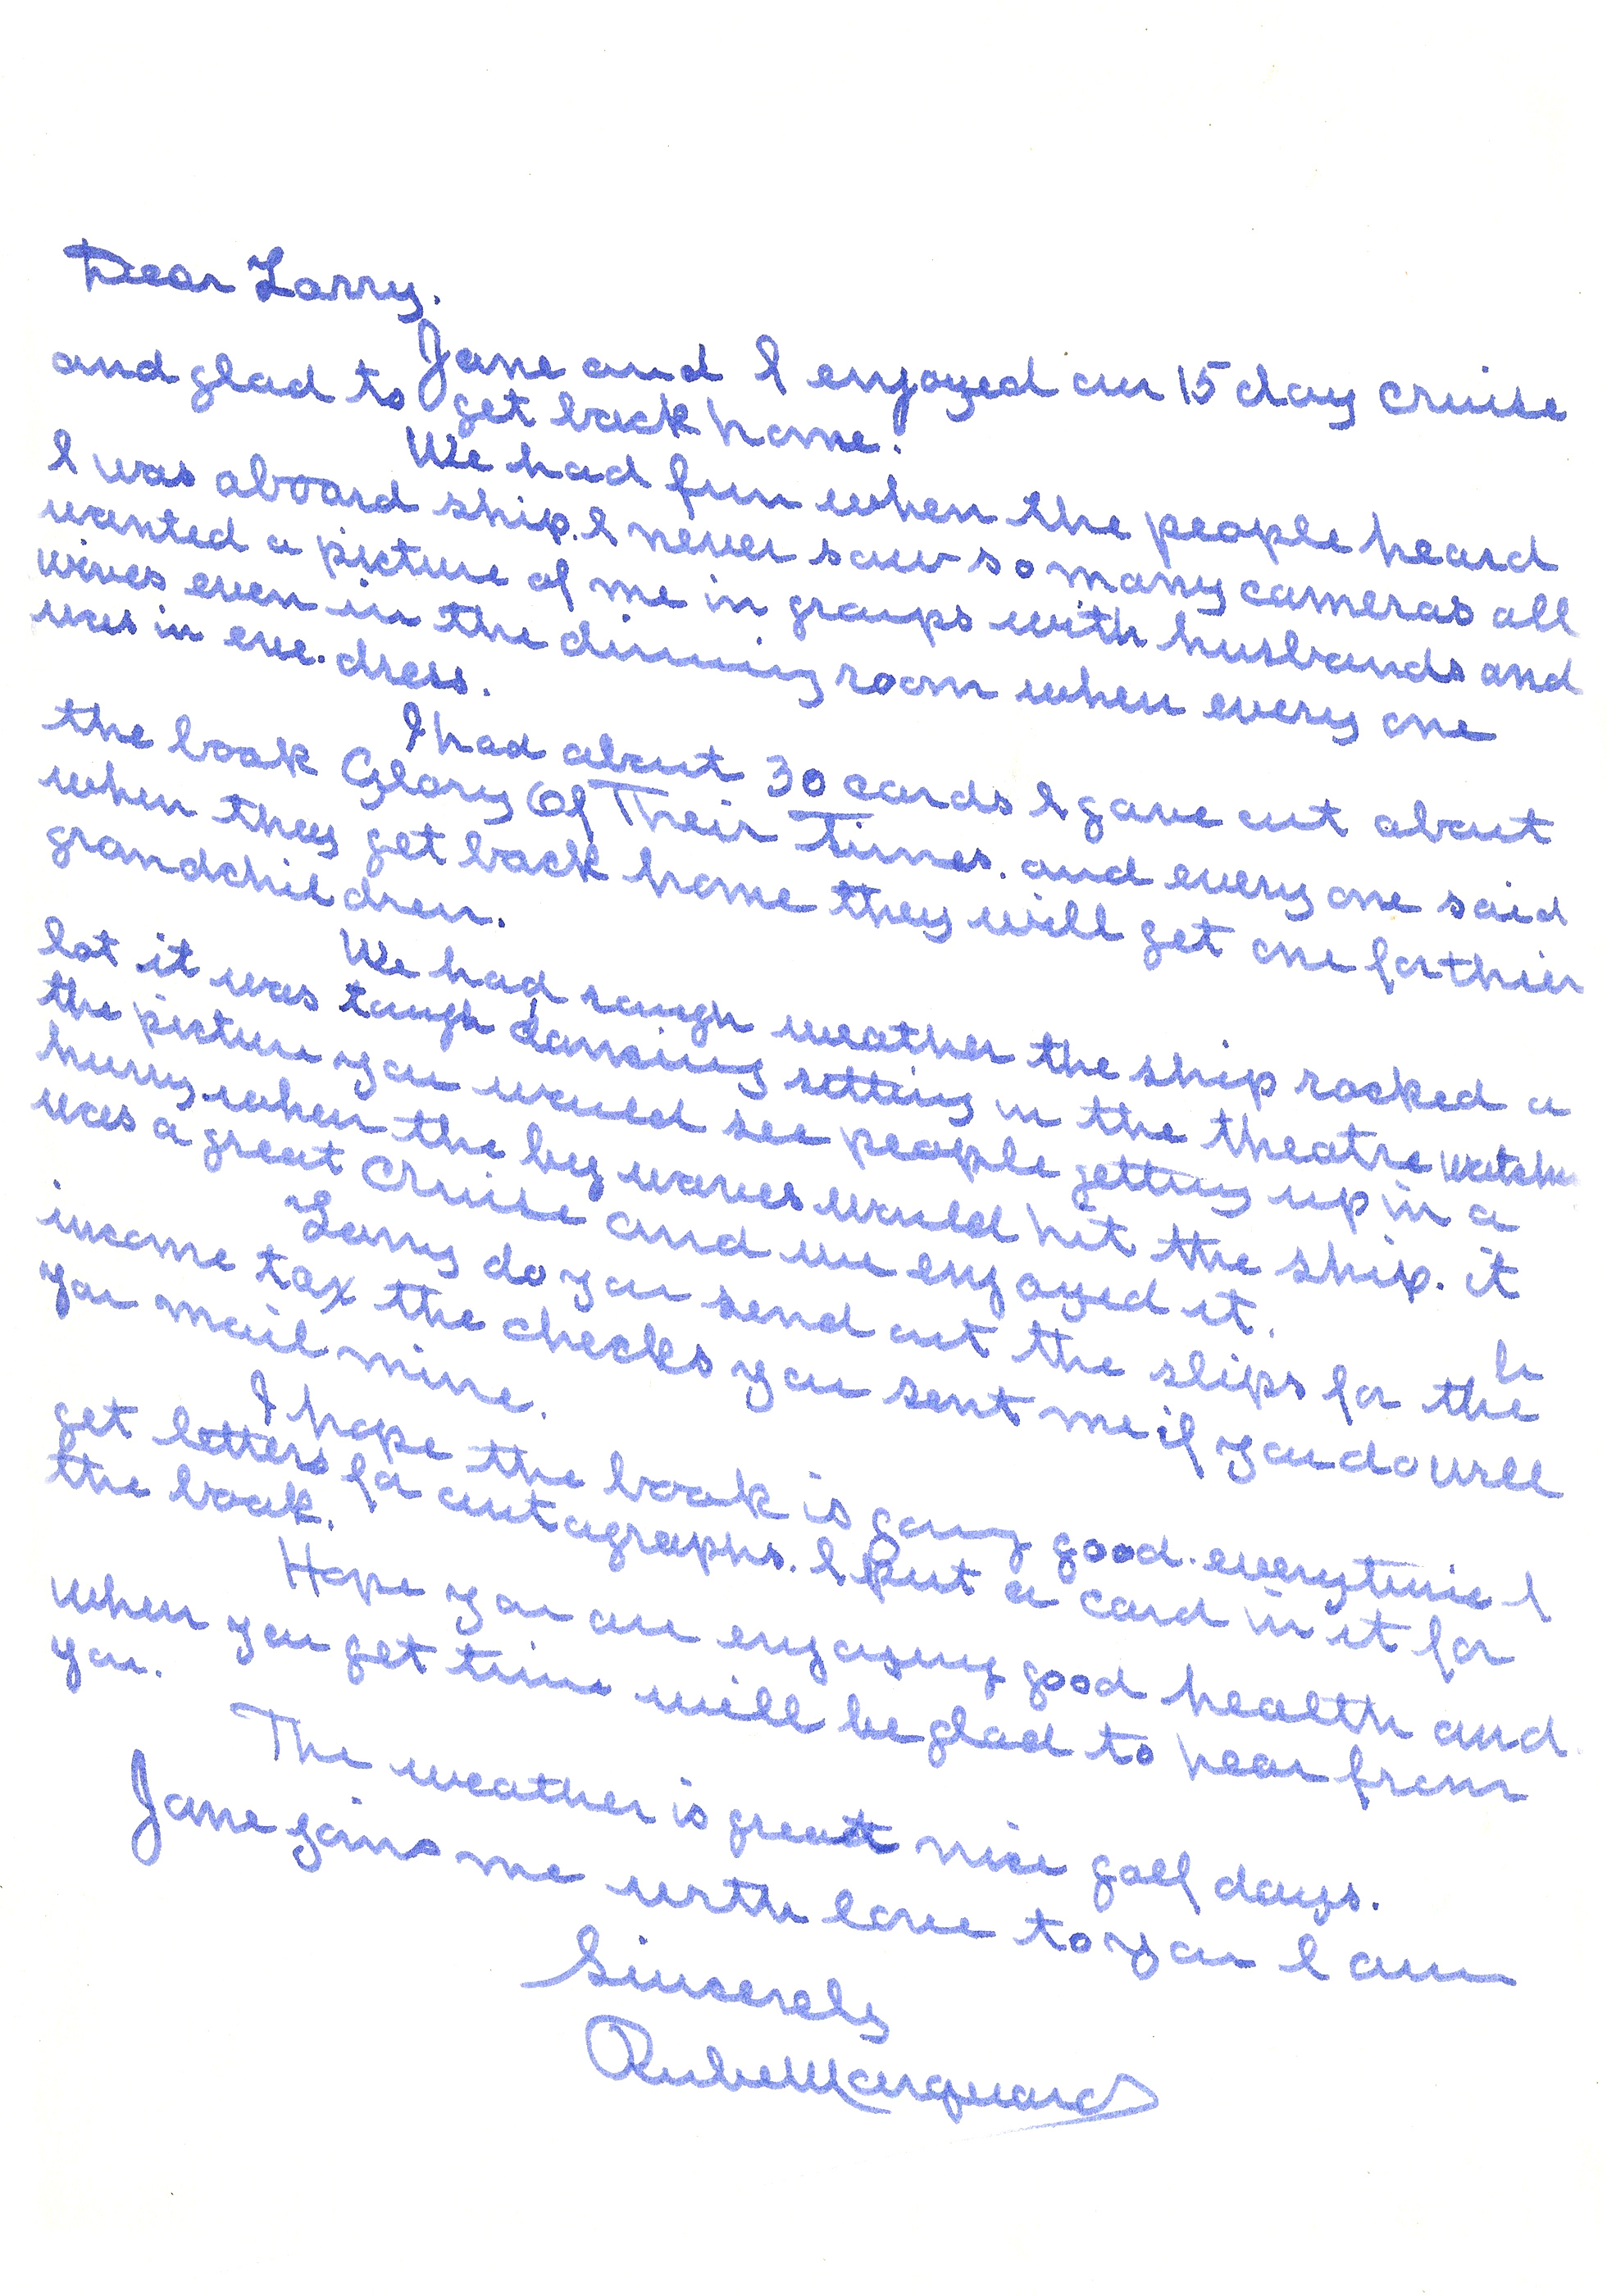 Dear Larry.
Jane and I enjoyed our 15 day cruise
and glad to get back home.
We had fun when the people heard
I was aboard ship. I never saw so many cameras all
wanted a picture of me in groups with husbands and
wives even in the dinning room when every one
was in eve. dress.
I had about 30 cards I gave out about
the book Glory Of Their Times. and every one said
when they get back home they will get one for thier
grandchildren.
We had rough weather the ship rocked a
lot it was tough dancing setting in the theatre
the picture you would see people getting up in a
hurry when the big waves would hit the ship. it
was a great cruise and we enjoyed it.
Larry do you send out the slips for the
income tax the checks you sent me if you do will
you mail mine.
I hope the book is going good. everytime I
get letters for autographs. I put a card in it for
the book.
Hope you are enjoying good health and
when you get time will be glad to hear from
you.
The weather is great nice golf days.
Jane joins me with love to you I am
Sincerely
Rube Marquard